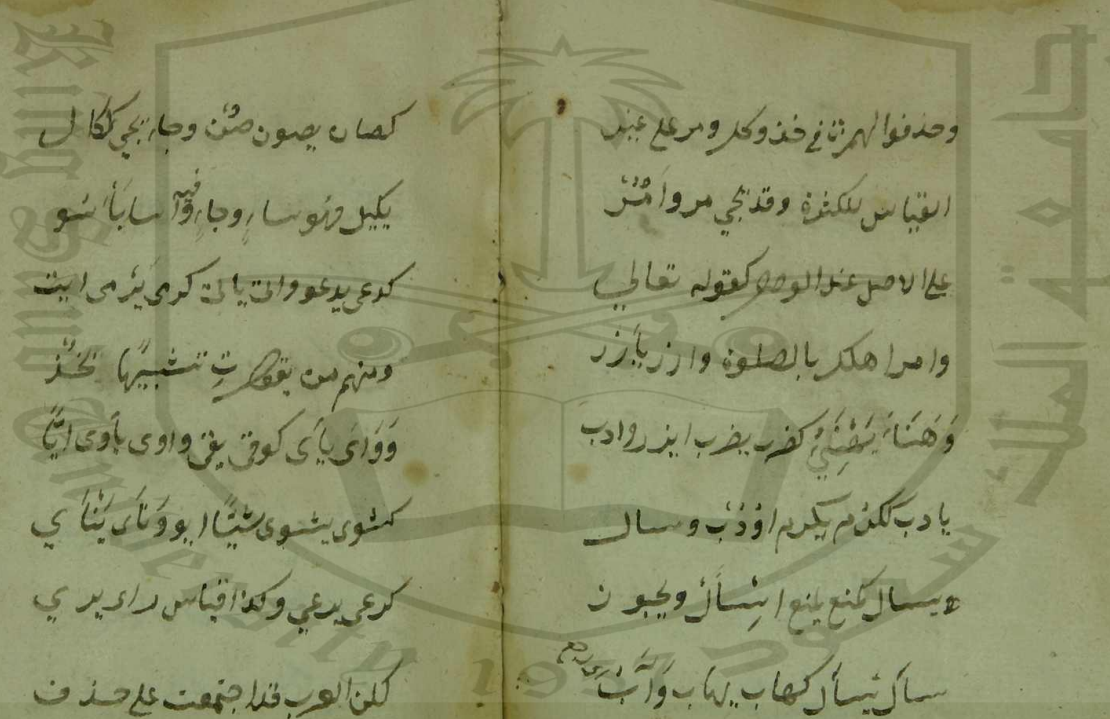 وحذفوا الهمزة في خذ وكل ومر على غير
القياس للكثرة وقد يجي مر وامر
على الاصل عند الوصل كقوله تعالى
وامر اهلك بالصلوة وازر يازر
وَهَنَاءَ يَهْنِئُ كضرب يضرب ايزر وادب
يادب ككرم يكرم اوذب وسال
ويسال كمنع يمنع اسأل ويجوز
سال يسال كهاب يهاب وآب
كصان يصون صُن وجاء يجي ككال
يكيل فهو ساء وجاء واسا ياسو
كدعى يدعو واتى ياتي كرمى يرمى ايت
ومنهم من يقول تِ تشبيهًا بخُذ
وَوَاى ياَى كوقى يقى واوى ياوى ايًّا
كشوى يشوى شيًّا ايو ونَاَى يَنْأَي
كدعى يدعي وكذا قياس راى يري
لكن العرب قد اجتمعت على حذف